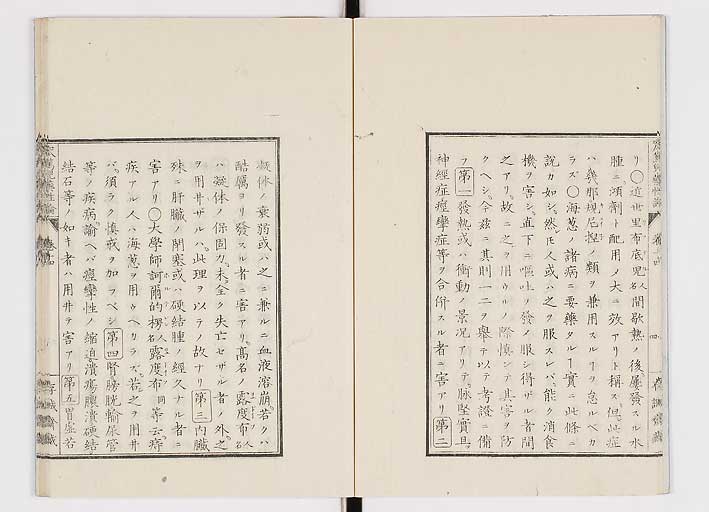 リ○近世里布底児人名間歇熱ノ後屢發スル水
腫ニ消劑ト配用ノ大ニ效アリト稱ス但此症
ハ幾那規尼捏ノ類ヲ兼用スルヿヲ怠ルベカ
ラズ○海葱ノ諸病ニ要藥タルヿ實ニ此條ニ
說カ如シ然𪜈人或ハ之ヲ服スレバ能ク消食
機ヲ害シ直下ニ嘔吐ヲ發ノ服シ得ザル者間
之アリ故ニ之ヲ用ウルノ際慎ンテ其害ヲ防
クヘシ今茲ニ其則一二ヲ舉テ以テ考證ニ備
フ第一發熱或ハ衝動ノ景況アリテ脉堅實且
神經症痙攣症等ヲ合併スル者ニ害アリ第二
凝体ノ衰弱或ハ之ニ兼ルニ血液溶崩若クハ
酷厲ヨリ發スル者ニ害アリ高名ノ露度布人名
ハ凝体ノ保固力未全ク失亡セザル者ノ外之
ヲ用ヰザルハ此理ヲ以テノ故ナリ第三內臟
殊ニ肝臟ノ閉塞或ハ硬結腫ノ經久ナル者ニ
害アリ○大學師訶爾的楞人名露度布同等云痔
疾アル人ハ海葱ヲ用ウベカラズ若之ヲ用井
バ須ラク慎戒ヲ加フベシ第四腎膀胱輸尿管
等ノ疾病諭ヘバ痙攣性ノ縮迫潰瘍膿潰硬結
結石等ノ如キ者ハ用井テ害アリ第五胃虛若